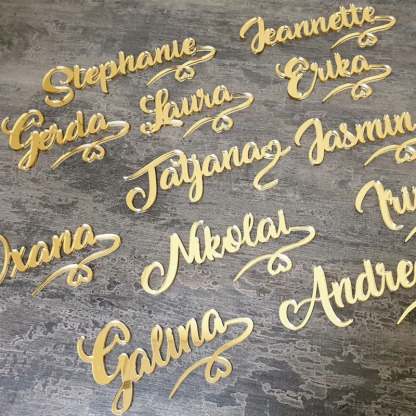 Jeannette
Stephanie
Erika
Laura
Gerda
Jasmin
Tatjana
Oxana
Nikolai
Galina